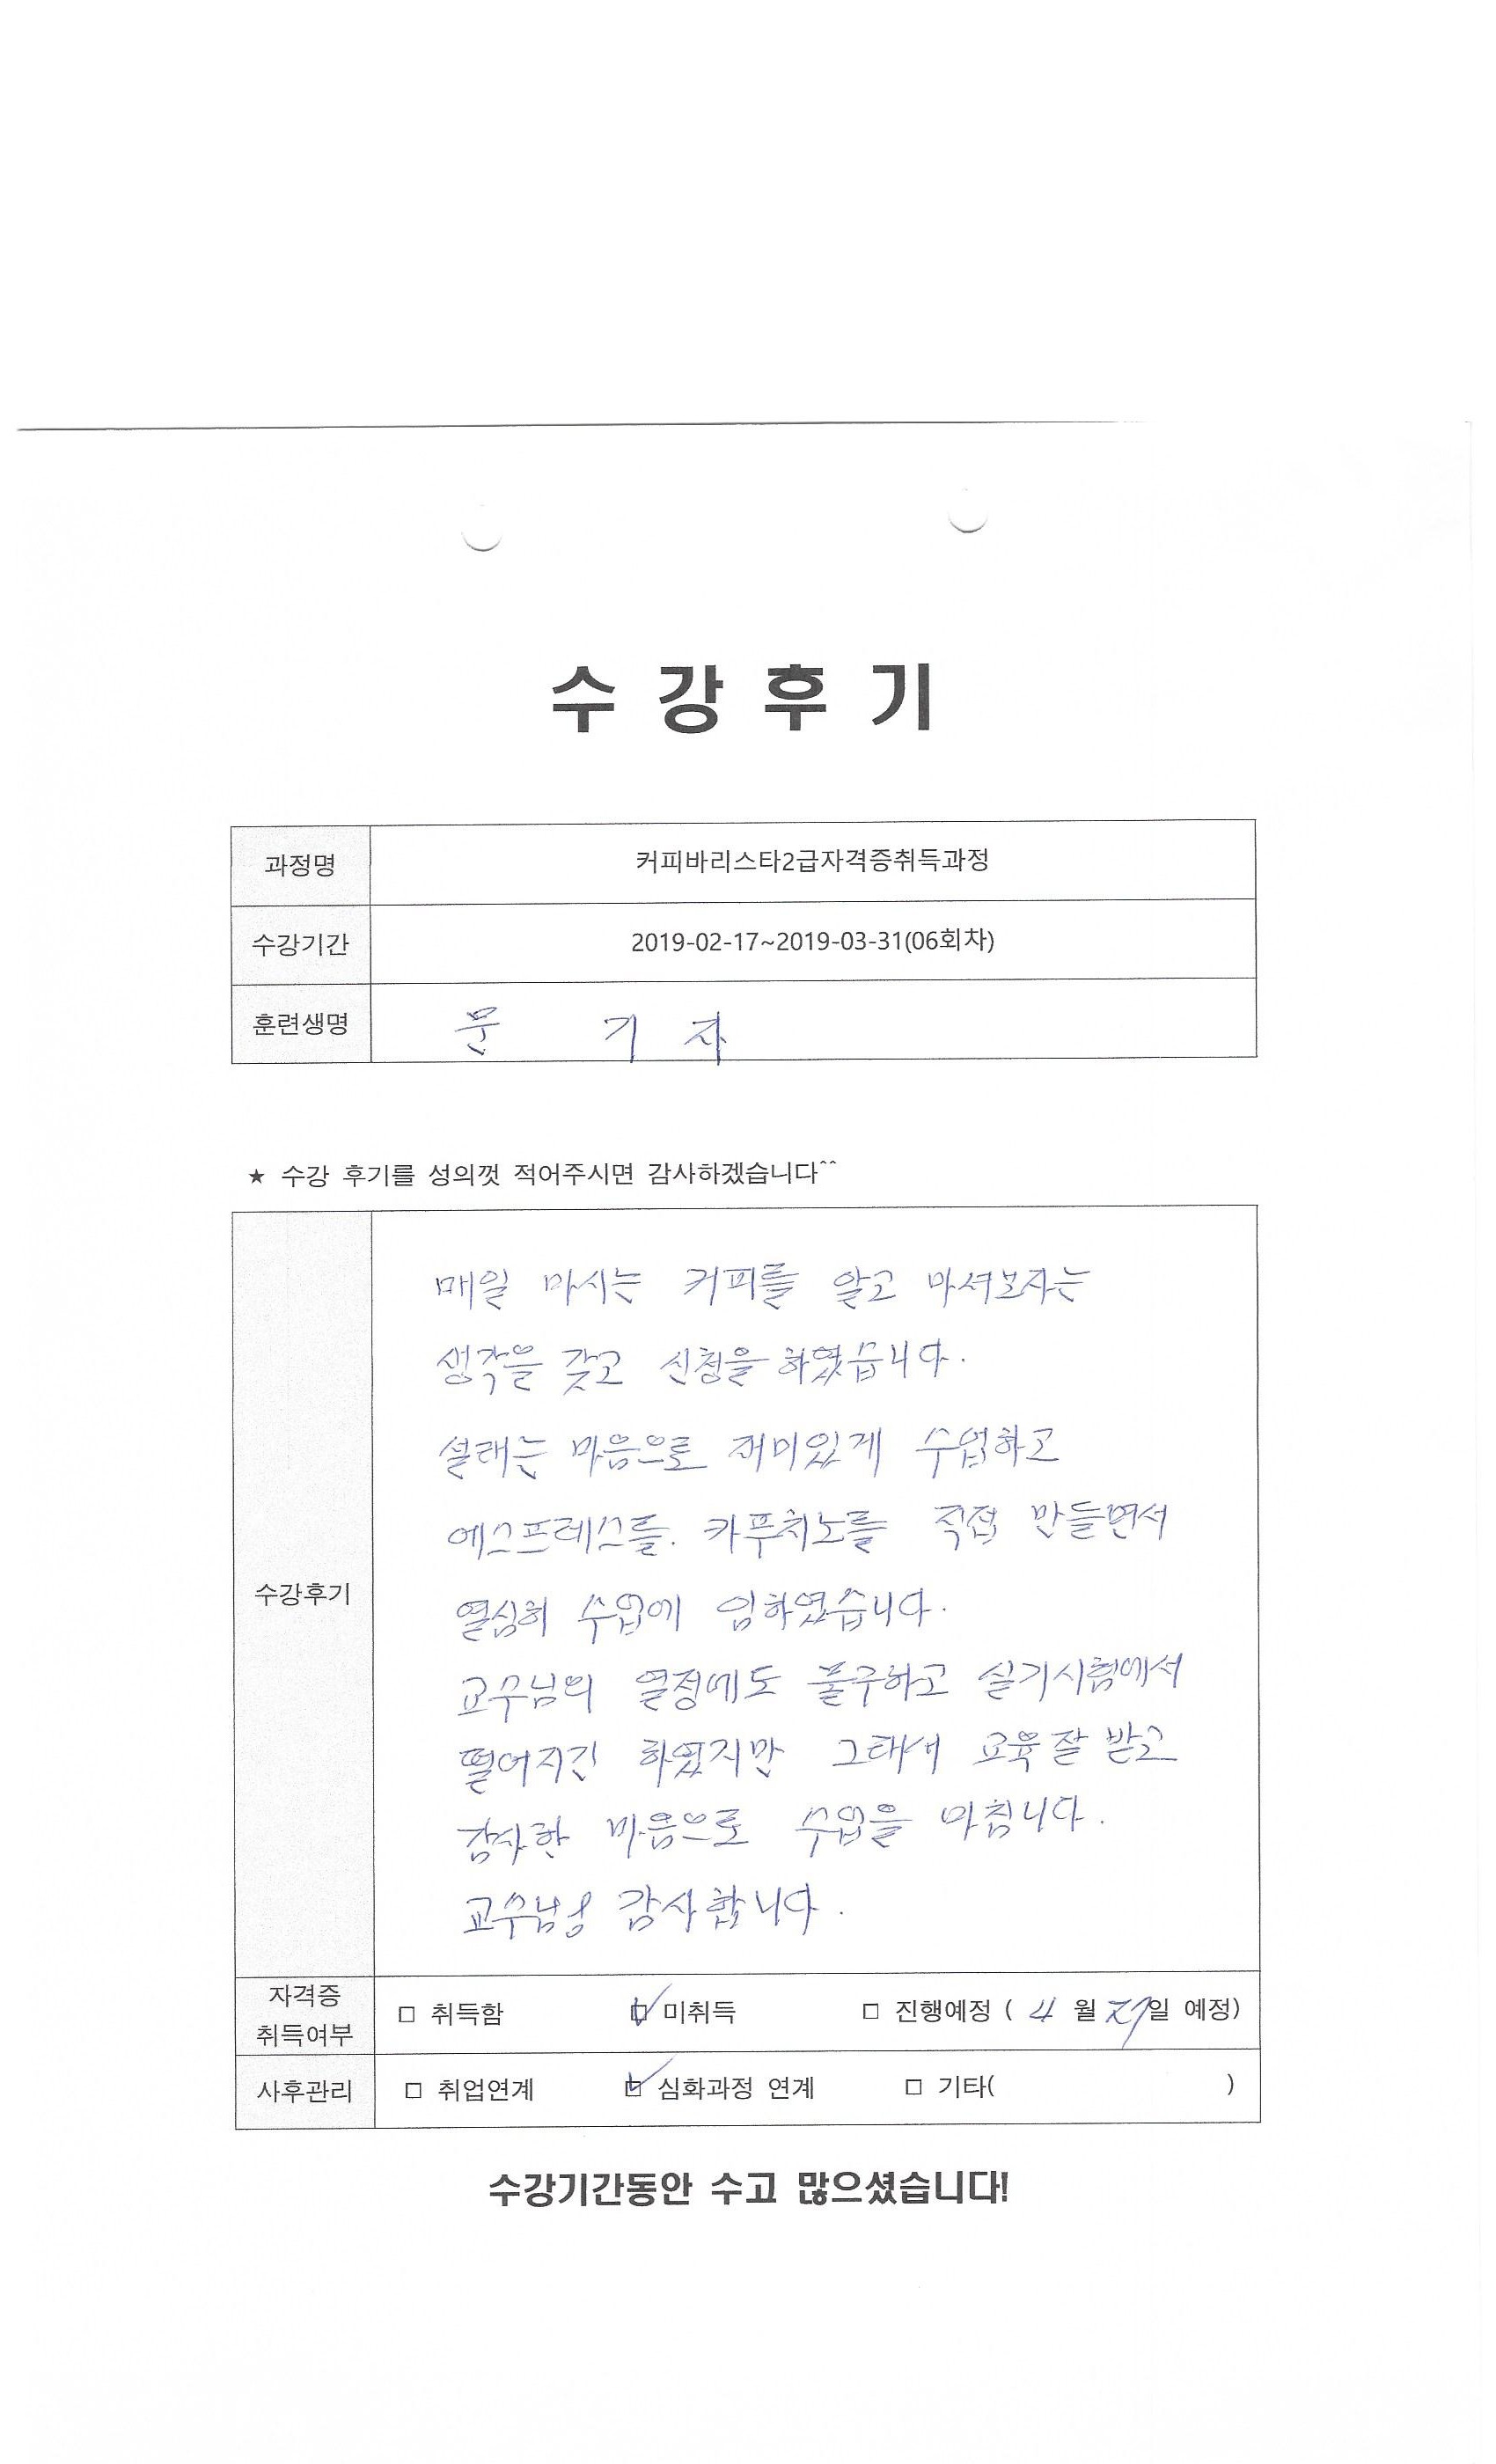 수 강 후 기
과정명 커피바리스타2급자격증취득과정
수강기간 2019-02-17~2019-03-31(06회차)
훈련생명 문 기 자
★ 수강 후기를 성의껏 적어주시면 감사하겠습니다^^
수강후기
매일 마시는 커피를 알고 마셔보자는
생각을 갖고 신청을 하였습니다.
설래는 마음으로 재미있게 수업하고
에스프레스를. 카푸치노를 직접 만들면서
열심히 수업에 임하였습니다.
교수님의 열정에도 불구하고 실기시험에서
떨어지긴 하였지만 그래서 교육 잘 받고
감사한 마음으로 수업을 마칩니다.
교수님 감사합니다.
자격증
취득여부
□ 취득함 □ 미취득 □ 진행예정 ( 4 월 일 예정)
사후관리 □ 취업연계 □ 심화과정 연계 □ 기타( )
수강기간동안 수고 많으셨습니다!